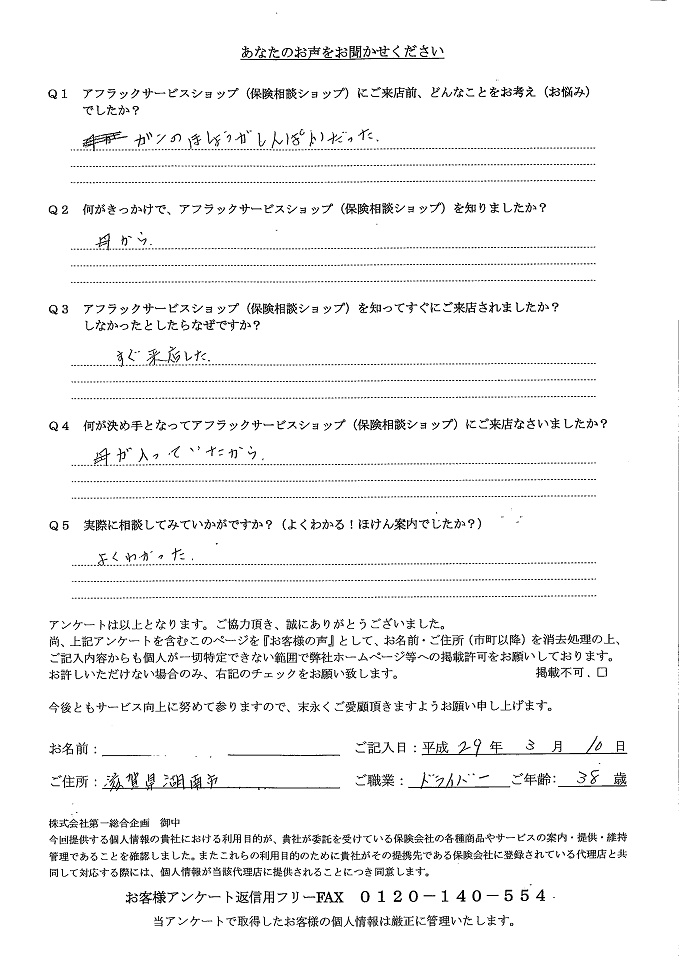 あなたのお声をお聞かせください
Q1 アフラックサービスショップ（保険相談ショップ）にご来店前、どんなことをお考え（お悩み）
でしたか？
ガンのほしょうがしんぱいだった.
Q2 何がきっかけで、アフラックサービスショップ（保険相談ショップ）を知りましたか？
母から.
Q3 アフラックサービスショップ（保険相談ショップ）を知ってすぐにご来店されましたか？
しなかったとしたらなぜですか？
すぐ来店した.
Q4 何が決め手となってアフラックサービスショップ（保険相談ショップ）にご来店なさいましたか？
母が入っていたから.
Q5 実際に相談してみていかがですか？（よくわかる！ほけん案内でしたか？）
よくわかった.
アンケートは以上となります。ご協力頂き、誠にありがとうございました。
尚、上記アンケートを含むこのページを『お客様の声』として、お名前・ご住所（市町以降）を消去処理の上、
ご記入内容からも個人が一切特定できない範囲で弊社ホームページ等への掲載許可をお願いしております。
お許しいただけない場合のみ、右記のチェックをお願い致します。 掲載不可．□
今後ともサービス向上に努めて参りますので、末永くご愛顧頂きますようお願い申し上げます。
お名前： ご記入日：平成 29 年 3 月 10 日
ご住所：滋賀県湖南市 ご職業：ドライバー ご年齢：38 歳
株式会社第一総合企画 御中
今回提供する個人情報の貴社における利用目的が、貴社が委託を受けている保険会社の各種商品やサービスの案内・提供・維持
管理であることを確認しました。またこれらの利用目的のために貴社がその提携先である保険会社に登録されている代理店と共
同して対応する際には、個人情報が当該代理店に提供されることにつき同意します。
お客様アンケート返信用フリーFAX 0120－140－554
当アンケートで取得したお客様の個人情報は厳正に管理いたします。